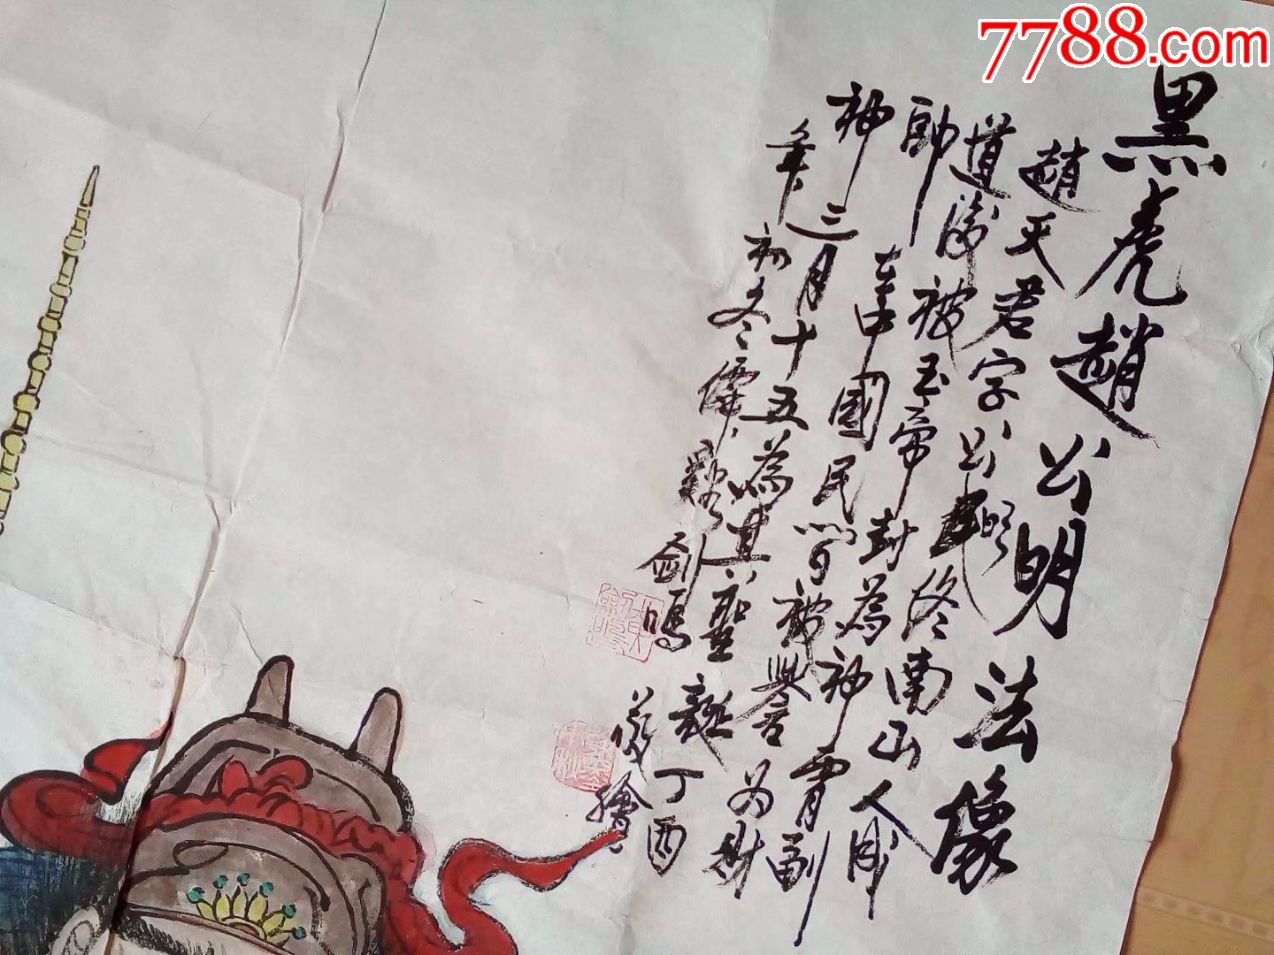 7788.com
黑虎趙公明法像
趙天君字公明終南山人成
道後被玉帝封為神霄副
帥在中國民間被譽為財
神三月十五為其聖誕丁酉
年初冬儒 劍鳴 敬繪